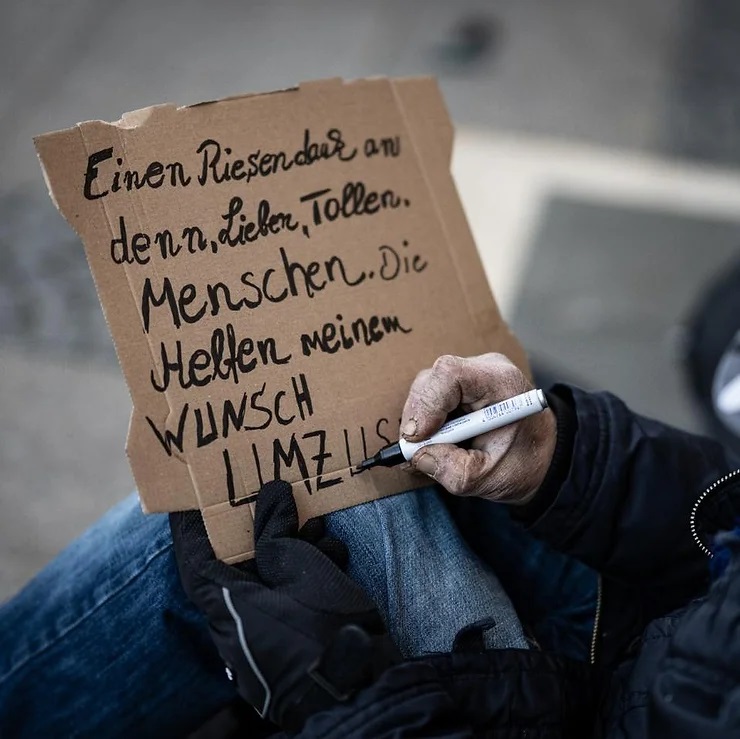 Einen Riesendank an
denn, Lieben, Tollen.
Menschen. Die
Helfen meinem
WUNSCH
UMZUS